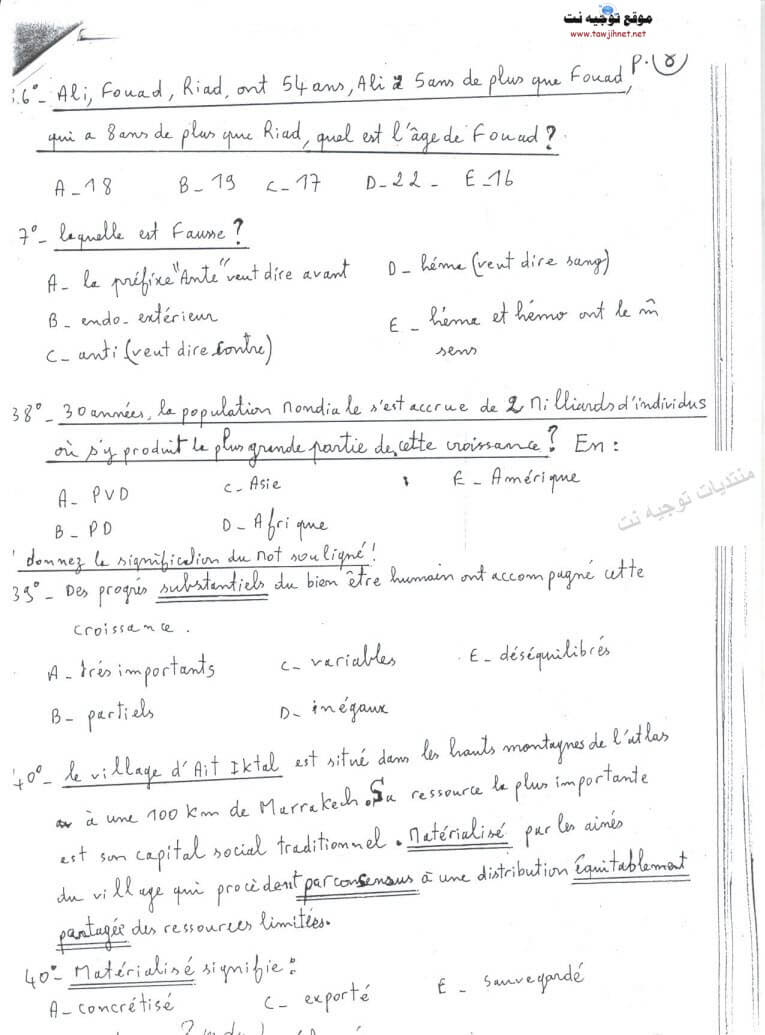 موقع توجيه نت
www.tawjihnet.net
P. 8
6°- Ali, Fouad, Riad, ont 54 ans, Ali a 5ans de plus que Fouad,
qui a 8ans de plus que Riad, quel est l'âge de Fouad?
A_18 B_19 C_17 D_22_ E_16
7°- laquelle est Fausse?
A_ le préfixe "Ante" veut dire avant
B_ endo_ extérieur
C_ anti (veut dire contre)
D_ héma (veut dire sang)
E_ héma et hémo ont le m̂
sens
38°_ 30 années, la population Mondiale s'est accrue de 2 Milliards d'individus
où s'y produit la plus grande partie de cette croissance? En:
A_ PVD
B_ PD
C_ Asie
D_ Afrique
E_ Amérique
منتديات توجيه نت
donnez la signification du Mot souligné!
39°_ Des progrés substantiels du bien être humain ont accompagné cette
croissance.
A_ trés importants
B_ partiels
C_ variables
D_ inégaux
E_ déséquilibrés
40°_ le village d'Ait Iktal est situé dans les hauts montagnes de l'atlas
à une 100 Km de Marrakech. Sa ressource la plus importante
est son capital social traditionnel. Matérialisé par les ainés
du village qui procèdent par consensus à une distribution équitablement
partagée des ressources limitées.
40°_ Matérialisé signifie:
A_ concrétisé C_ exporté E_ sauvegardé